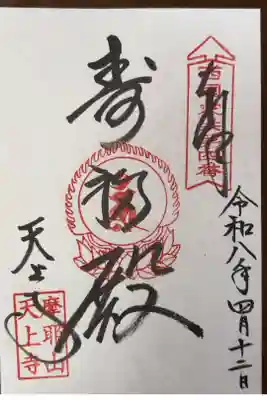 奉拝
令和八年四月十二日
寿福殿
天上寺
摩耶山
天上寺